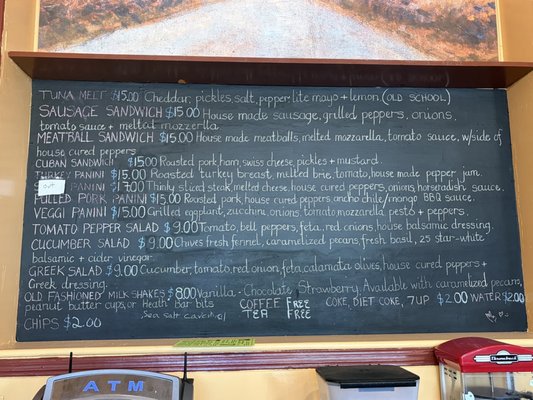 TUNA MELT $15.00 Cheddar, pickles, salt, pepper, lite mayo + lemon (OLD SCHOOL)
SAUSAGE SANDWICH $15.00 House made sausage, grilled peppers, onions,
tomato sauce + melted mozzerella
MEATBALL SANDWICH $15.00 House made meatballs, melted mozzarella, tomato sauce, w/side of
house cured peppers
CUBAN SANDWICH $15.00 Roasted pork, ham, swiss cheese, pickles + mustard.
TURKEY PANINI $15.00 Roasted turkey breast, melted brie, tomato, house made pepper jam.
OUT PANINI $17.00 Thinly sliced steak, melted cheese, house cured peppers, onions, horseradish sauce.
PULLED PORK PANINI $15.00 Roasted pork, house cured peppers, ancho chile/mango BBQ sauce.
VEGGI PANINI $15.00 Grilled eggplant, zucchini, onions, tomato, mozzarella, pesto + peppers.
TOMATO PEPPER SALAD $9.00 Tomato, bell peppers, feta, red onions, house balsamic dressing.
CUCUMBER SALAD $9.00 Chives, fresh fennel, caramelized pecans, fresh basil, 25 star-white
balsamic + cider vinegar.
GREEK SALAD $9.00 Cucumber, tomato, red onion, feta, calamata olives, house cured peppers +
Greek dressing.
OLD FASHIONED MILK SHAKES $8.00 Vanilla - Chocolate Strawberry. Available with caramelized pecans,
peanut butter cups, or Heath Bar bits COFFEE FREE COKE, DIET COKE, 7UP $2.00 WATER $2.00
Sea salt TEA FREE
CHIPS $2.00
ATM